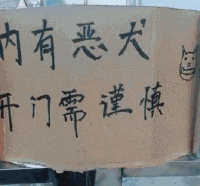 内有恶犬
开门需谨慎